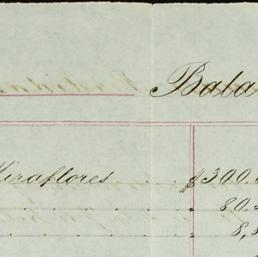 Bala
Miraflores . . . $300.
. 80.
. 8,